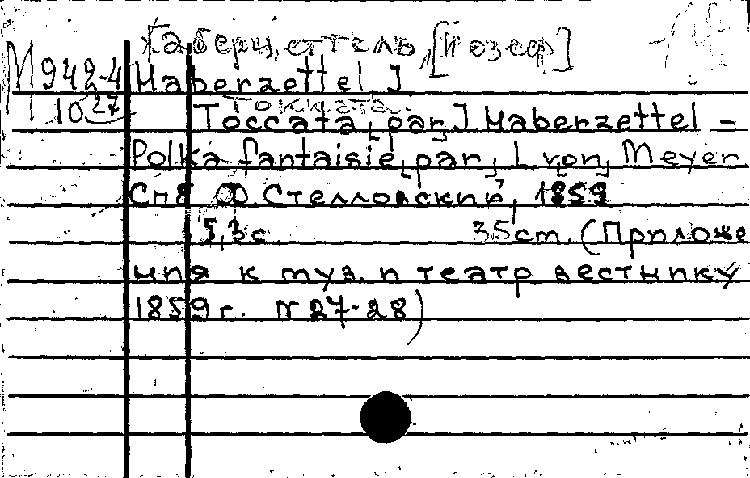 Хаберцеттель, [Йозеф]
М 942-4 Haberzettel J
10 27 Токката.
Toccata, par J Haberzettel -
Polka fantaisie, par, L von, Meyer
Спб Ф. Стелловский, 1859
5,3 с 35 cm. (Приложе
ния к муз. и театр вестнику
1859 г. № 27-28)